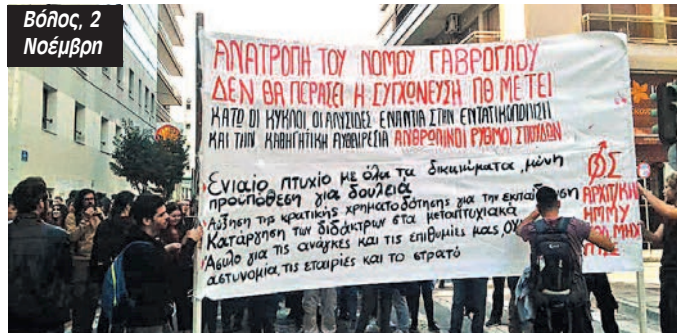 Βόλος, 2
Νοέμβρη
ΑΝΑΤΡΟΠΗ ΤΟΥ ΝΟΜΟΥ ΓΑΒΡΟΓΛΟΥ
ΔΕΝ ΘΑ ΠΕΡΑΣΕΙ Η ΣΥΓΧΩΝΕΥΣΗ ΠΘ ΜΕ ΤΕΙ
ΚΑΤΩ ΟΙ ΚΥΚΛΟΙ ΟΙ ΑΛΥΣΙΔΕΣ ΕΝΑΝΤΙΑ ΣΤΗΝ ΕΝΤΑΤΙΚΟΠΟΙΗΣΗ
ΚΑΙ ΤΗΝ ΚΑΘΗΓΗΤΙΚΗ ΑΥΘΑΙΡΕΣΙΑ ΑΝΘΡΩΠΙΝΟΙ ΡΥΘΜΟΙ ΣΠΟΥΔΩΝ
Ενιαίο πτυχίο με όλα τα δικαιώματα, μόνη
προϋπόθεση για δουλειά
Αύξηση της κρατικής χρηματοδότησης για την εκπαίδευση
Κατάργηση των διδάκτρων στα μεταπτυχιακά
Άσυλο για τις ανάγκες και τις επιθυμίες μας, όχι
αστυνομία, τις εταιρίες και το στρατό
ΦΣ
ΑΡΧΙΤ/ΚΗΣ
ΗΜΜΥ